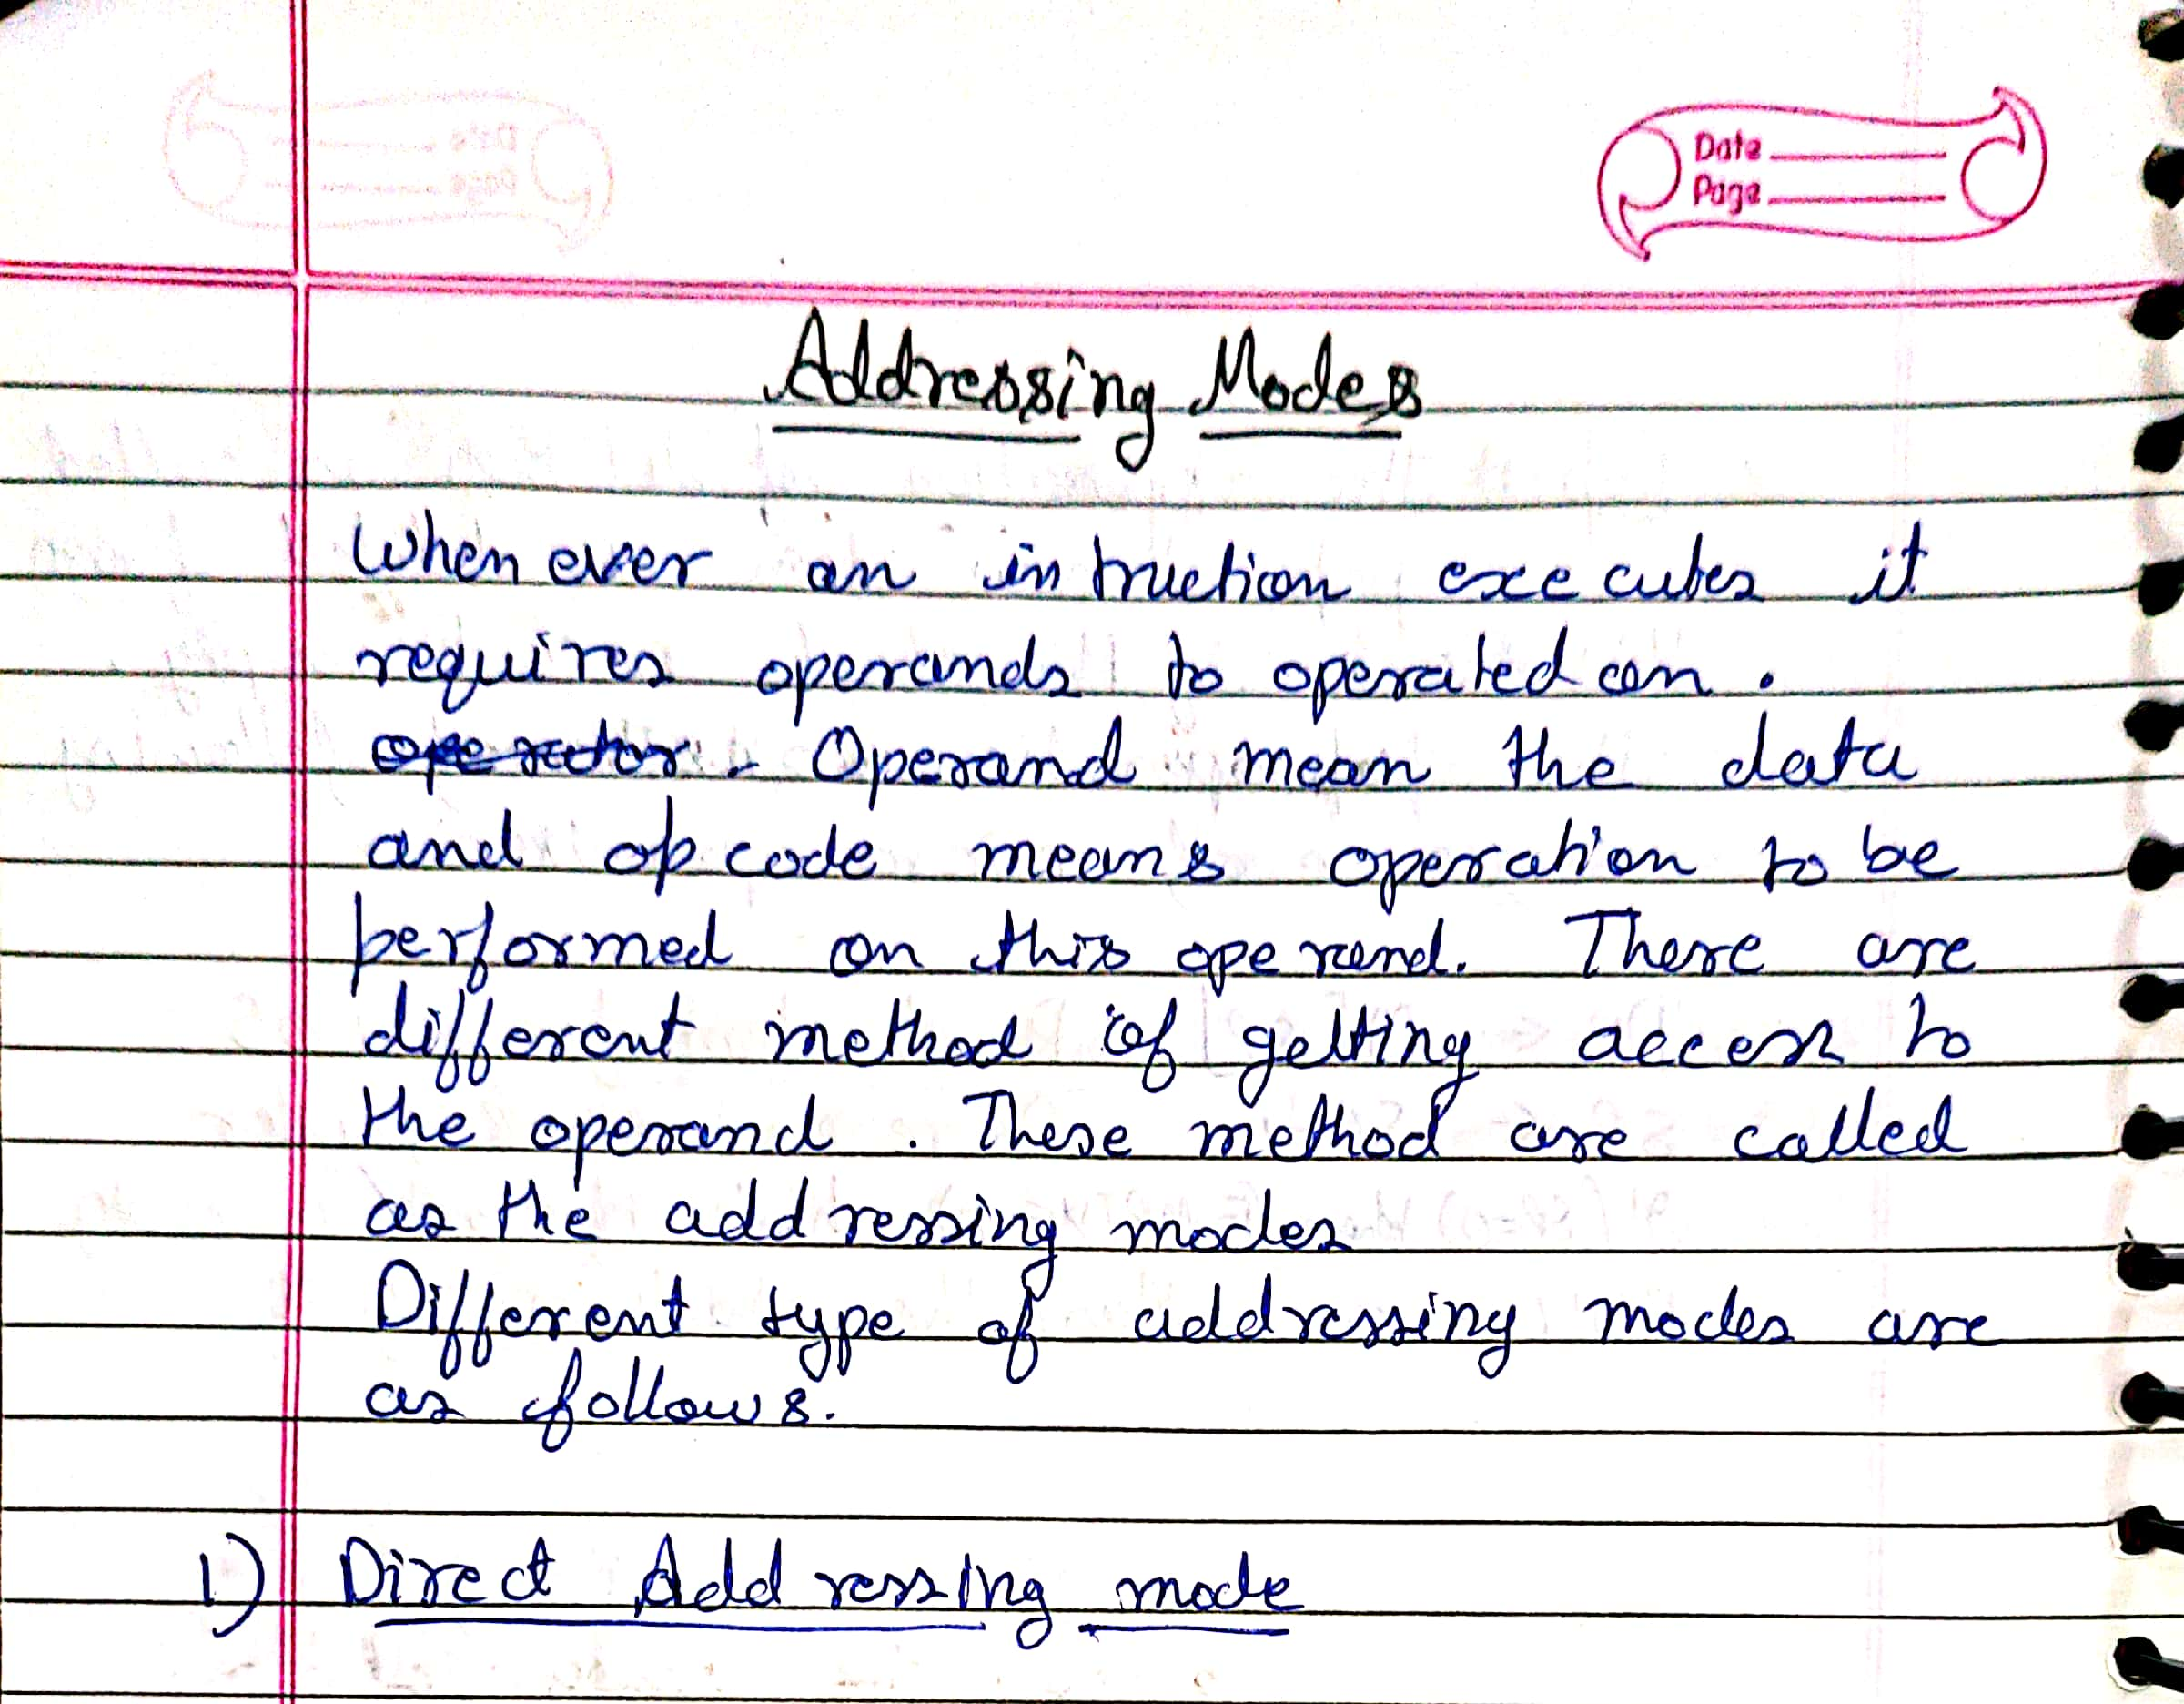 Date
Page
Addressing Modes
Whenever an intruction executes it
requires operands to operated on.
operator. Operand mean the data
and opcode means operation to be
performed on this operand. There are
different method of getting access to
the operand. These method are called
as the addressing modes
Different type of addressing modes are
as follows.
1) Direct Addressing mode